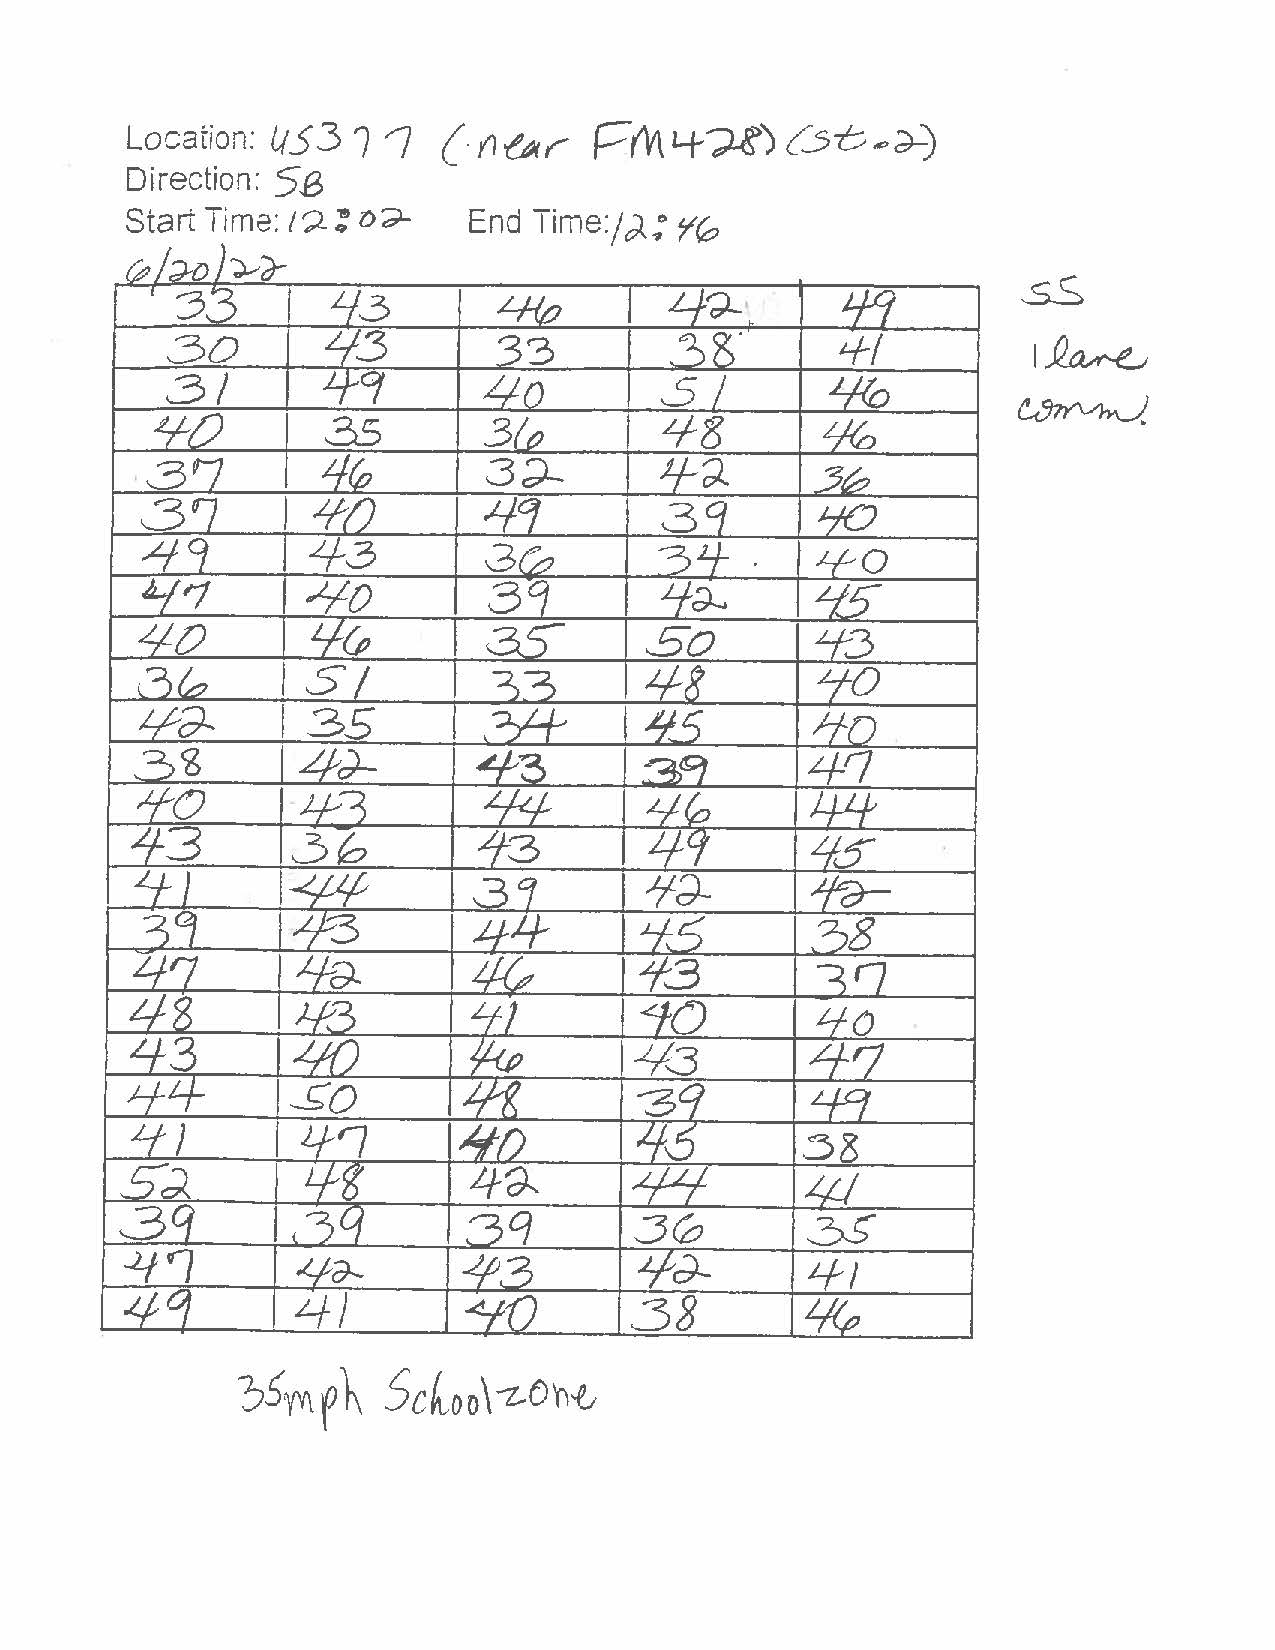 Location: US377 (near FM428) (st.2)
Direction: SB
Start Time: 12:02 End Time: 12:46
6/20/22
33 43 46 42 49
SS
30 43 33 38 41
1 lane
31 49 40 51 46
comm.
40 35 36 48 46
37 46 32 42 36
37 40 49 39 40
49 43 36 34 40
47 40 39 42 45
40 46 35 50 43
36 51 33 48 40
42 35 34 45 40
38 42 43 39 47
40 43 44 46 44
43 36 43 49 45
41 44 39 42 42
39 43 44 45 38
47 42 46 43 37
48 43 41 40 40
43 40 46 43 47
44 50 48 39 49
41 47 40 45 38
52 48 42 44 41
39 39 39 36 35
47 42 43 42 41
49 41 40 38 46
35mph School zone